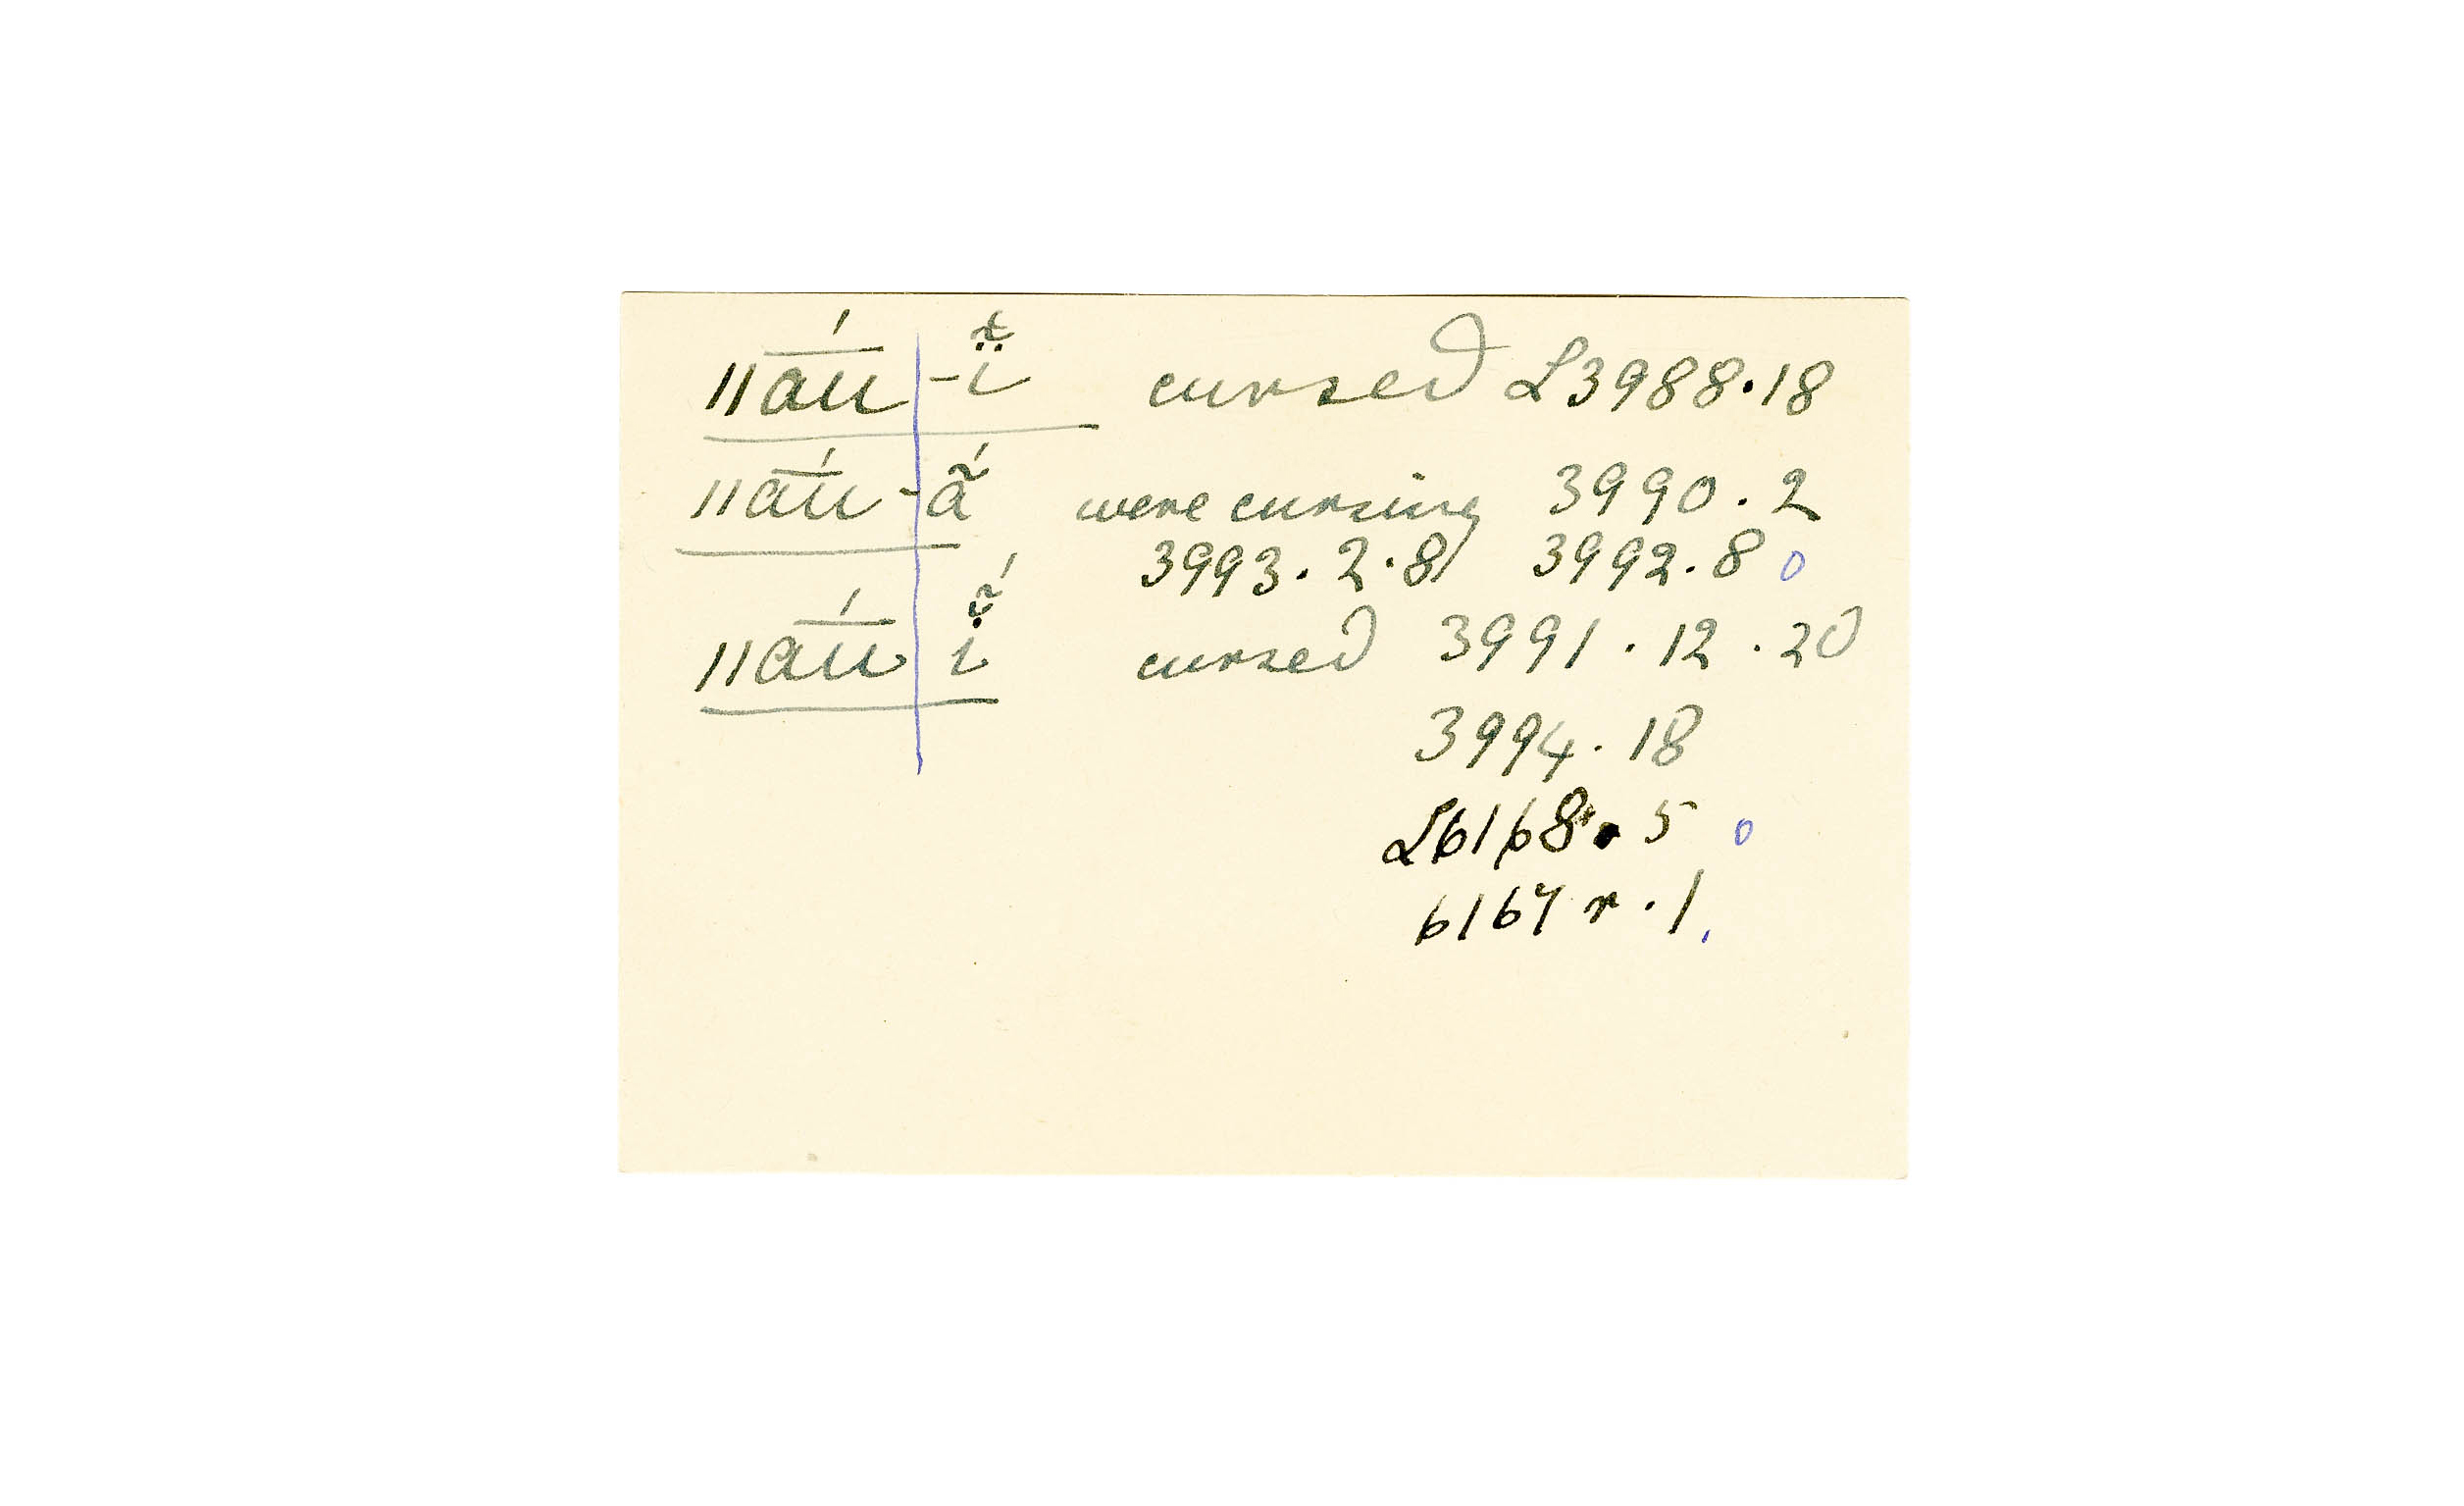 ǁa͞ú -ï̆̃ cursed L3988.18
ǁa͞ú -ã́ were cursing 3990.2
3993.2.8/ 3992.8 o
ǁa͞ú ï̃́ cursed 3991.12.20
3994.18
L6168.5 o
6167r.1,